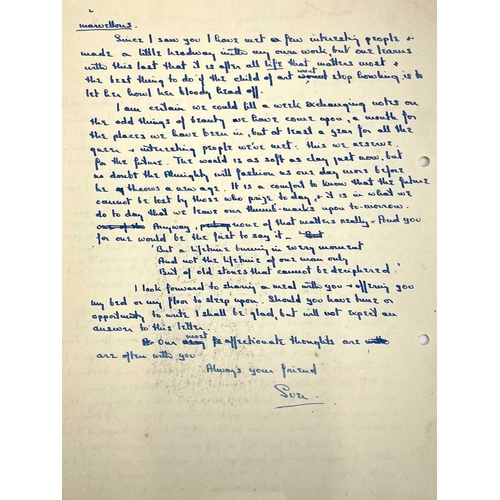 2
marvellous.
Since I saw you I have met a few interesting people +
made a little headway with my own work, but one learns
with this last that it is after all life that matters most +
the best thing to do if the child of art wont stop howling is to
let her howl her bloody head off.
I am certain we could fill a week exchanging notes on
the odd things of beauty we have come upon, a month for
the places we have been in, but at least a year for all the
queer + interesting people we've met: this we reserve
for the future. The world is as soft as clay just now, but
no doubt the Almighty will fashion us one day more before
he throws a new age. It is a comfort to know that the future
cannot be lost by those who prize to day, + it is in what we
do to day that we leave our thumb-marks upon to-morrow.
Anyway, none of that matters really. And you
for one would be the first to say it - But
But a lifetime burning in every moment
And not the lifetime of one man only
But of old stones that cannot be deciphered.'
I look forward to sharing a meal with you + offering you
my bed or my floor to sleep upon. Should you have time or
opportunity to write I shall be glad, but will not expect an
answer to this letter.
Our most affectionate thoughts are with
are often with you
Always your friend